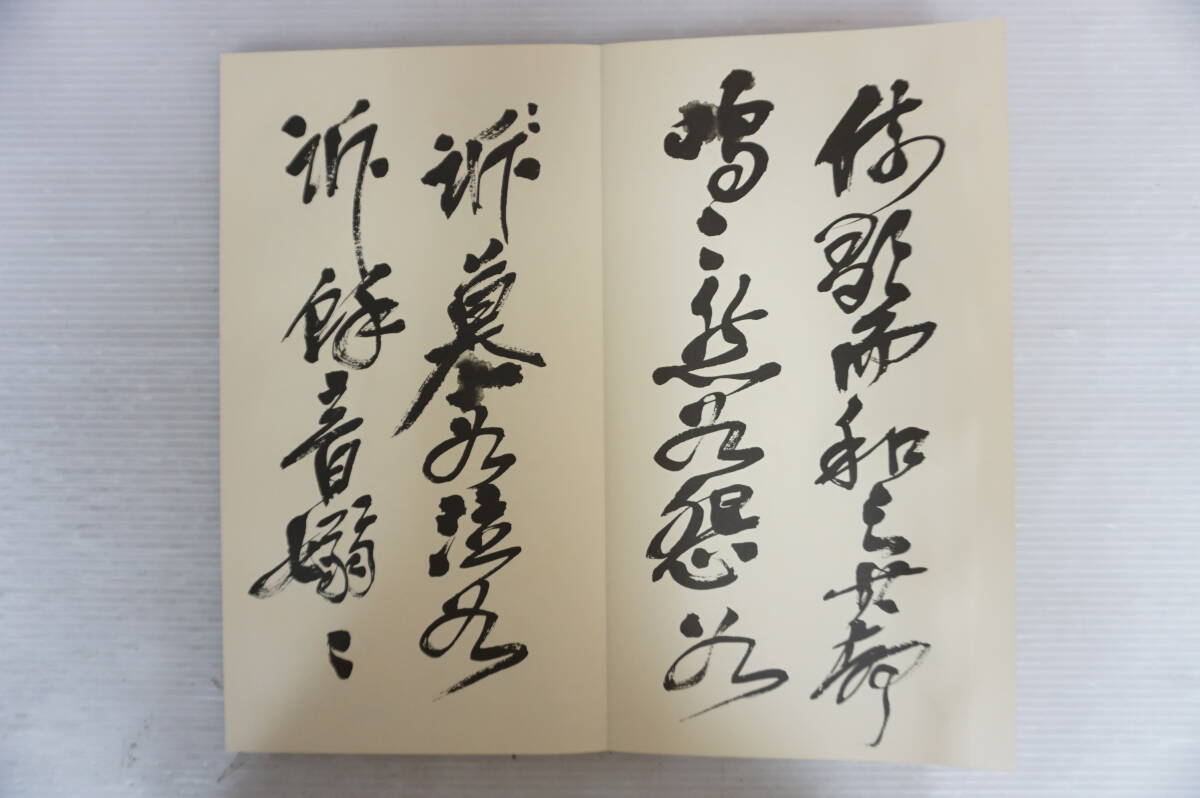 倚歌而和之其聲
嗚〻然如怨如
訴慕如泣如
訴餘音嫋〻